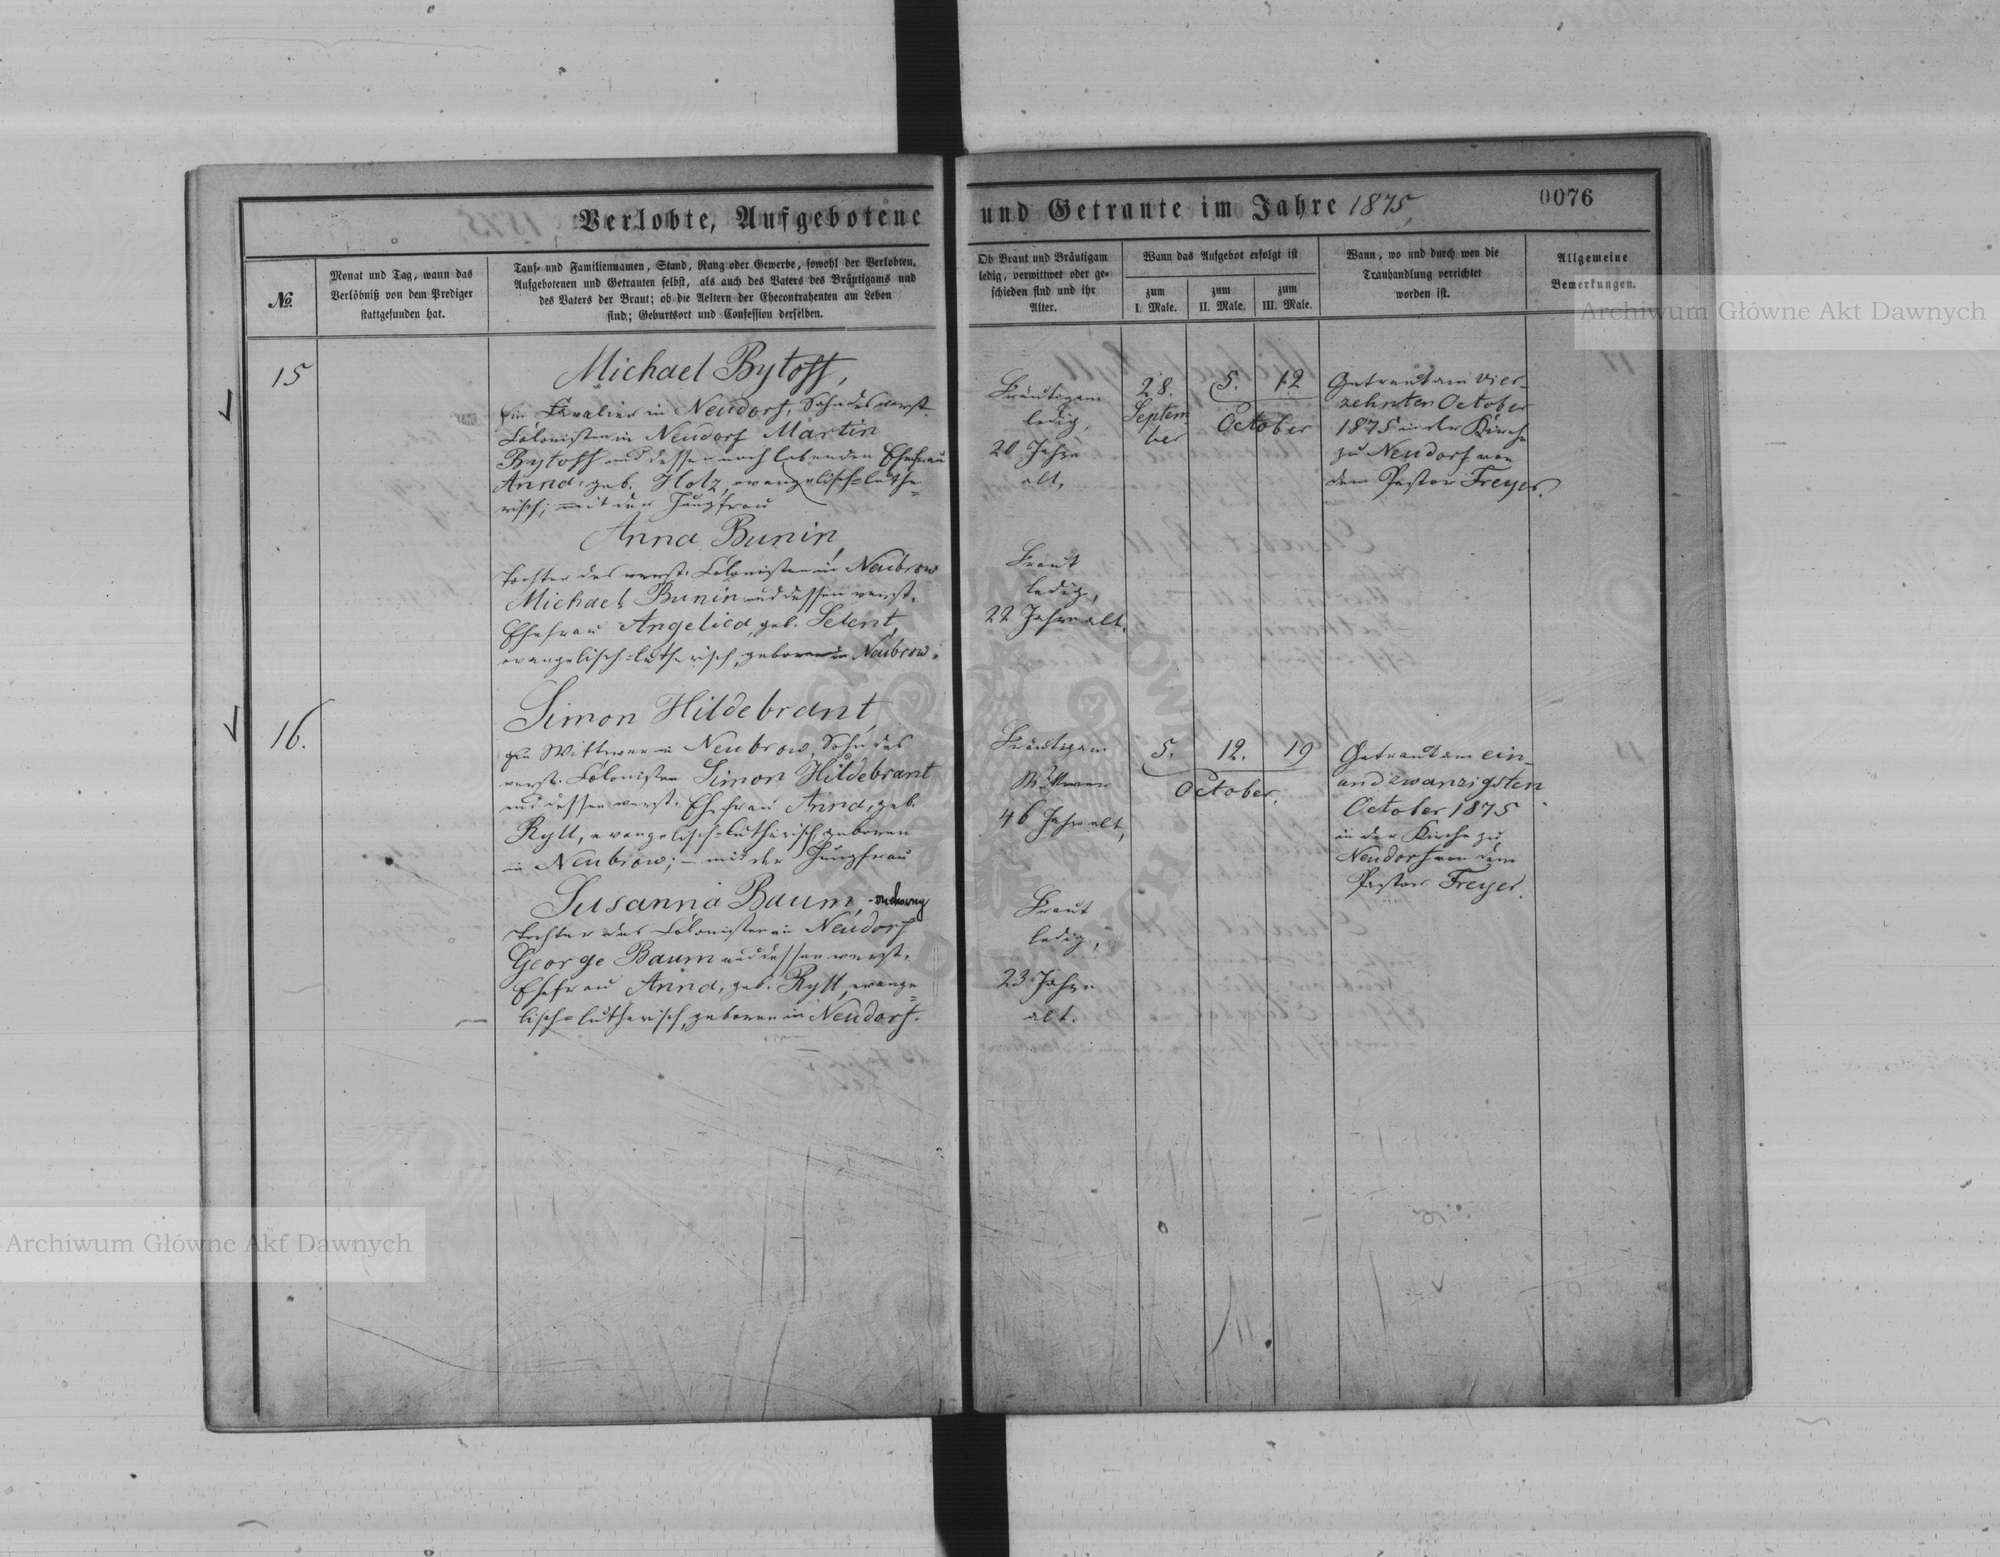 Verlobte, Aufgebotene und Getraute im Jahre 1875,
0076
№
Monat und Tag, wann das
Verlöbniß von dem Prediger
stattgefunden hat.
Tauf- und Familiennamen, Stand, Rang oder Gewerbe, sowohl der Verlobten,
Aufgebotenen und Getrauten selbst, als auch des Vaters des Bräutigams und
des Vaters der Braut; ob die Aeltern der Ehecontrahenten am Leben
sind; Geburtsort und Confession derselben.
Ob Braut und Bräutigam
ledig, verwittwet oder ge-
schieden sind und ihr
Alter.
Wann das Aufgebot erfolgt ist
zum
I. Male.
zum
II. Male.
zum
III. Male.
Wann, wo und durch wen die
Trauhandlung verrichtet
worden ist.
Allgemeine
Bemerkungen.
Archiwum Główne Akt Dawnych
15
Michael Bytoff,
in Neudorf, Sohn des verst.
Colonisten in Neudorf Martin
Bytoff und dessen noch lebenden Ehefrau
Anna, geb. Holz, evangelisch-luthe-
risch; mit der Jungfrau
Anna Bunin,
Tochter des verst. Colonisten in Neubrow
Michael Bunin und dessen verst.
Ehefrau Angelica, geb. Selent,
evangelisch-lutherisch, geboren in Neubrow.
Bräutigam
ledig,
20 Jahre
alt,
Braut
ledig,
22 Jahre alt.
28.
Septem-
ber
5. 12
October
Getraut am vier-
zehnten October
1875 in der Kirche
zu Neudorf von
dem Pastor Freyer.
16.
Simon Hildebrant,
ein Wittwer in Neubrow, Sohn des
verst. Colonisten Simon Hildebrant
und dessen verst. Ehefrau Anna, geb.
Rytt, evangelisch-lutherisch, geboren
in Neubrow; – mit der Jungfrau
Susanna Baum,
Tochter des Colonisten in Neudorf
George Baum und dessen verst.
Ehefrau Anna, geb. Rytt, evange-
lisch-lutherisch, geboren in Neudorf.
Bräutigam
Wittwer
46 Jahr alt,
Braut
ledig,
23 Jahre
alt.
5. 12. 19
October.
Getraut am ein-
undzwanzigsten
October 1875
in der Kirche zu
Neudorf von dem
Pastor Freyer.
Archiwum Główne Akt Dawnych